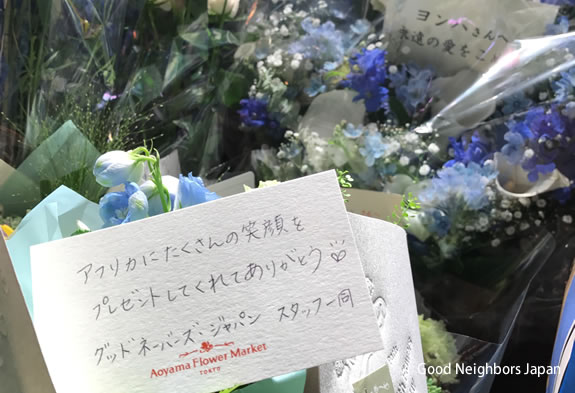 ヨンハさんへ
永遠の愛をこ
アフリカにたくさんの笑顔を
プレゼントしてくれてありがとう♡
グッドネーバーズ・ジャパン スタッフ一同
Aoyama Flower Market
TOKYO
Good Neighbors Japan